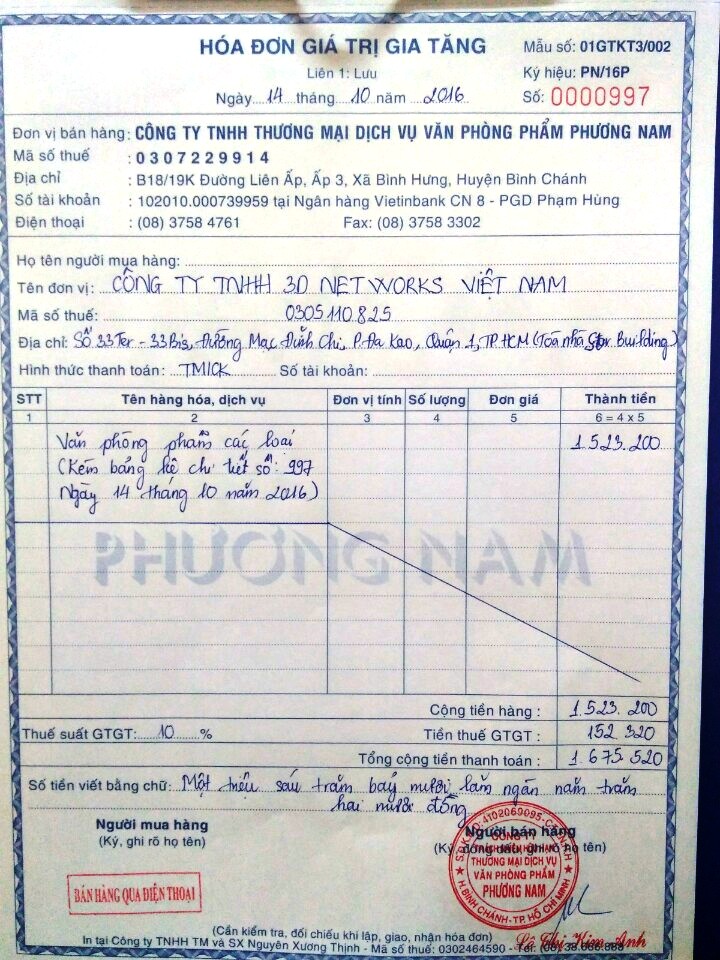 HÓA ĐƠN GIÁ TRỊ GIA TĂNG
Mẫu số: 01GTKT3/002
Liên 1: Lưu
Ký hiệu: PN/16P
Ngày 14 tháng 10 năm 2016
Số: 0000997
Đơn vị bán hàng: CÔNG TY TNHH THƯƠNG MẠI DỊCH VỤ VĂN PHÒNG PHẨM PHƯƠNG NAM
Mã số thuế : 0307229914
Địa chỉ : B18/19K Đường Liên Ấp, Ấp 3, Xã Bình Hưng, Huyện Bình Chánh
Số tài khoản : 102010.000739959 tại Ngân hàng Vietinbank CN 8 - PGD Phạm Hùng
Điện thoại : (08) 3758 4761 Fax: (08) 3758 3302
Họ tên người mua hàng:
Tên đơn vị: CÔNG TY TNHH 3D NETWORKS VIỆT NAM
Mã số thuế: 0305110825
Địa chỉ: Số 33Ter - 33Bis, Đường Mạc Đĩnh Chi, P. Đa Kao, Quận 1, TP.HCM (Toà nhà Star Building)
Hình thức thanh toán: TM/CK Số tài khoản:
STT Tên hàng hóa, dịch vụ Đơn vị tính Số lượng Đơn giá Thành tiền
1 2 3 4 5 6 = 4 x 5
Văn phòng phẩm các loại 1.523.200
(Kèm bảng kê chi tiết số: 997
Ngày 14 tháng 10 năm 2016)
PHƯƠNG NAM
Cộng tiền hàng : 1.523.200
Thuế suất GTGT: 10 % Tiền thuế GTGT : 152 320
Tổng cộng tiền thanh toán : 1 675.520
Số tiền viết bằng chữ: Một triệu sáu trăm bảy mươi lăm ngàn năm trăm
hai mươi đồng
Người mua hàng Người bán hàng
(Ký, ghi rõ họ tên) (Ký, đóng dấu, ghi rõ họ tên)
S.Đ.K.K.D: 4102069095
CÔNG TY
THƯƠNG MẠI DỊCH VỤ
VĂN PHÒNG PHẨM
PHƯƠNG NAM
H. BÌNH CHÁNH - TP. HỒ CHÍ MINH
BÁN HÀNG QUA ĐIỆN THOẠI
Lê Thị Kim Anh
(Cần kiểm tra, đối chiếu khi lập, giao, nhận hóa đơn)
In tại Công ty TNHH TM và SX Nguyên Xương Thịnh - Mã số thuế: 0302464590